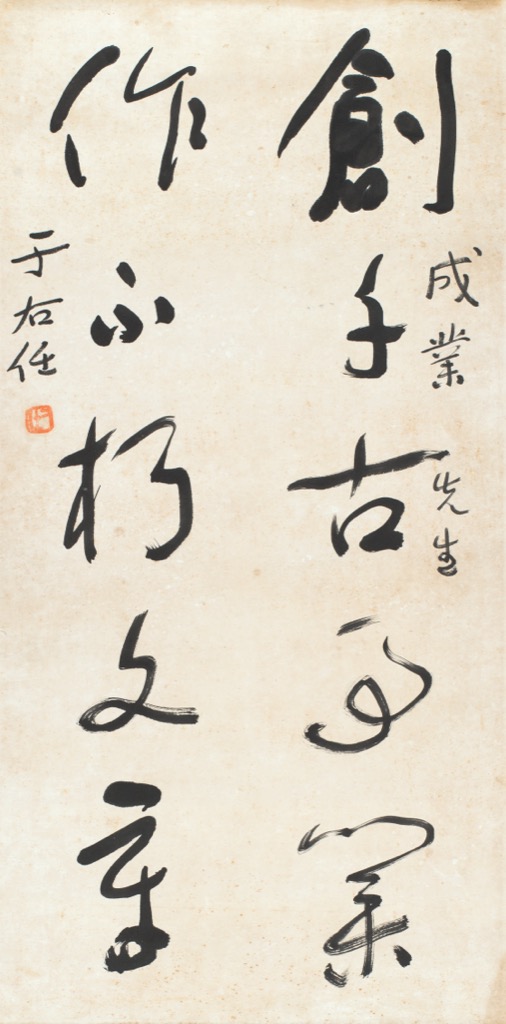 創千古事業
成業先生
作不朽文章
于右任